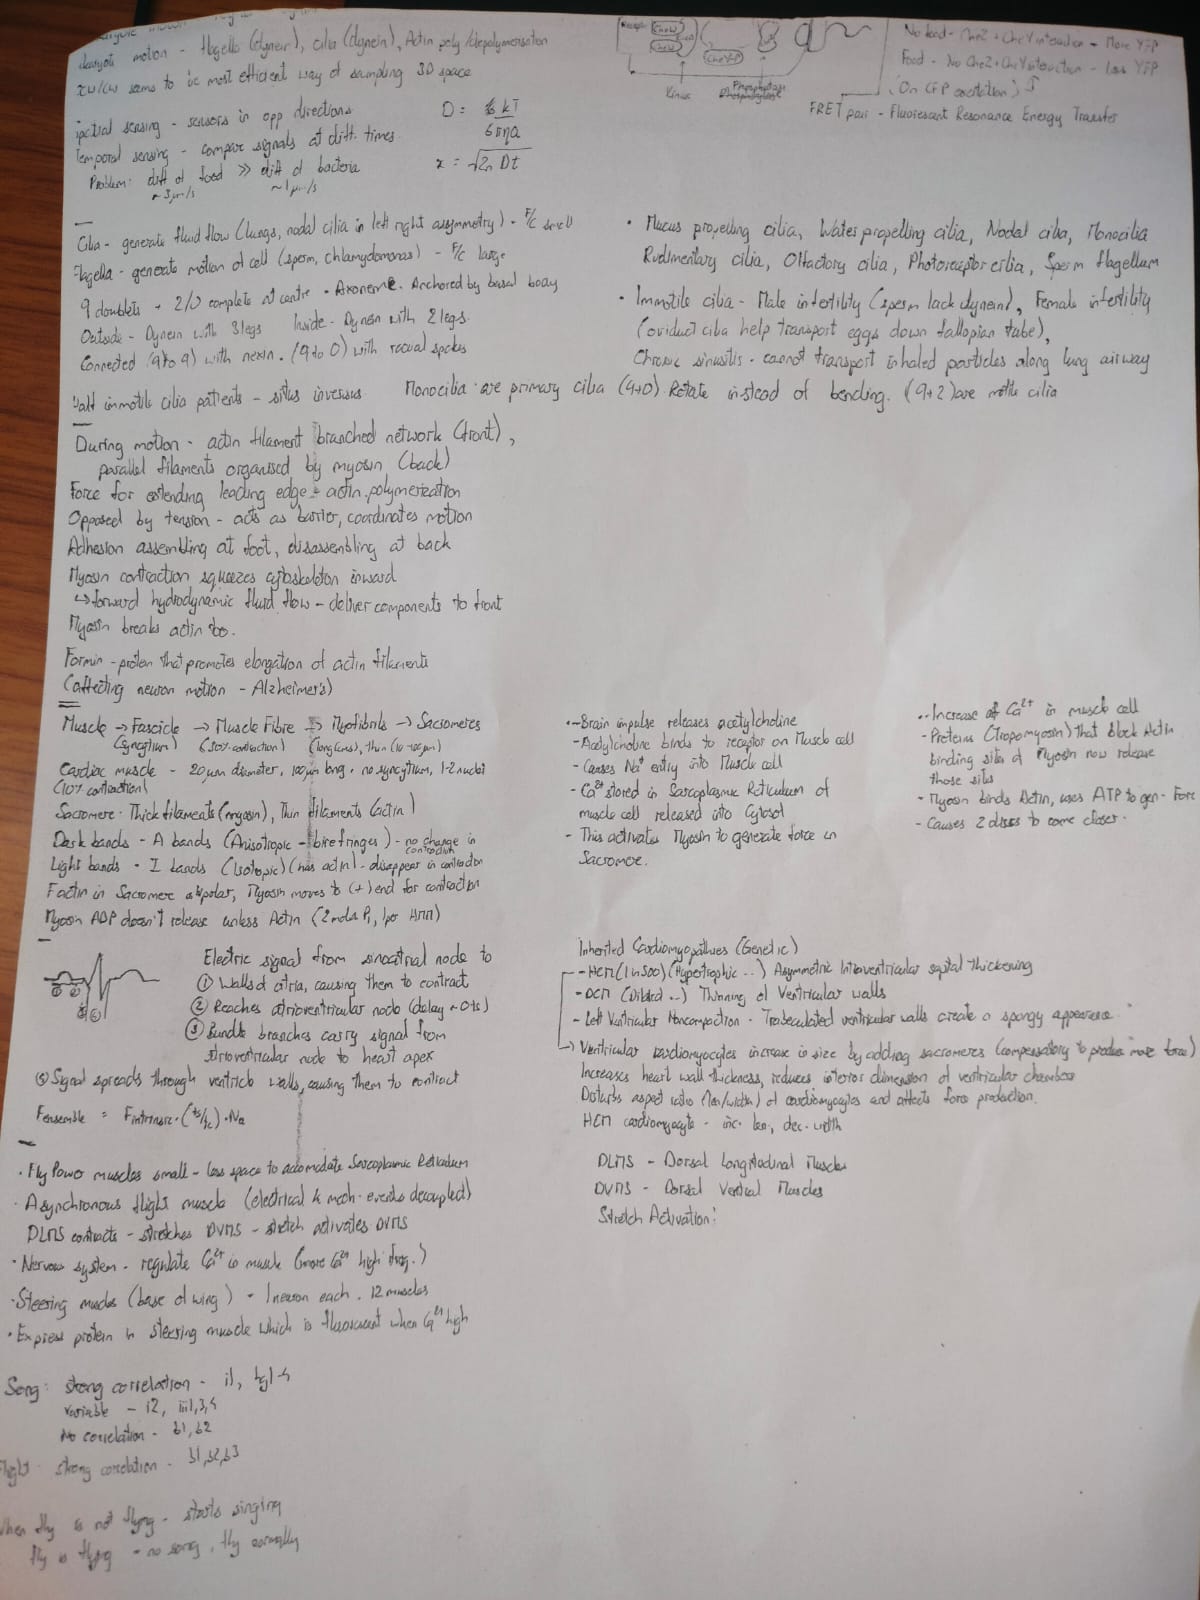 motion - flagella (dynein), cilia (dynein), Actin poly/depolymerisation
CCW/CW seems to be most efficient way of sampling 3D space
spatial sensing - sensors in opp directions
Temporal sensing - compare signals at diff. times.
Problem: diff of food >> diff of bacteria
~3μm/s ~1μm/s
D = kT
6πηa
x = √2n Dt
CheW
CheW
CheY-P
Kinase
Phosphatase
No food - CheZ + CheY interaction - More YFP
Food - No CheZ + CheY interaction - Less YFP
(On CFP excitation)
FRET pair - Fluorescent Resonance Energy Transfer
Cilia - generate fluid flow (lungs, nodal cilia in left right asymmetry) - F/C small
Flagella - generate motion of cell (sperm, chlamydomonas) - F/C large
9 doublets + 2/0 complete at centre - Axoneme. Anchored by basal body
Outside - Dynein with 3 legs Inside - Dynein with 2 legs.
Connected (9 to 9) with nexin. (9 to 0) with radial spokes
Half immotile cilia patients - situs inversus
• Mucus propelling cilia, Water propelling cilia, Nodal cilia, Monocilia
Rudimentary cilia, Olfactory cilia, Photoreceptor cilia, Sperm flagellum
• Immotile cilia - Male infertility (sperm lack dynein), Female infertility
(oviduct cilia help transport eggs down fallopian tube),
Chronic sinusitis - cannot transport inhaled particles along lung airway
Monocilia are primary cilia (9+0). Rotate instead of bending. (9+2) are motile cilia
During motion - actin filament branched network (front),
parallel filaments organised by myosin (back)
Force for extending leading edge - actin polymerization
Opposed by tension - acts as barrier, coordinates motion
Adhesion assembling at foot, disassembling at back
Myosin contraction squeezes cytoskeleton inward
↳ forward hydrodynamic fluid flow - deliver components to front
Myosin breaks actin too.
Formin - protein that promotes elongation of actin filaments
(affecting neuron motion - Alzheimer's)
Muscle → Fascicle → Muscle Fibre → Myofibrils → Sacromeres
(syncytium) (30% contraction) (long (cms), thin (10-100μm)
Cardiac muscle - 20μm diameter, 100μm long, no syncytium, 1-2 nuclei
(10% contraction)
Sacromere - Thick filaments (myosin), Thin filaments (actin)
Dark bands - A bands (Anisotropic - birefringes) - no change in contraction
Light bands - I bands (Isotopic) (has actin) - disappear in contraction
Factin in Sacromere is polar, Myosin moves to (+) end for contraction
Myosin ADP doesn't release unless Actin (2 mol Pi, 1 per HMM)
- Brain impulse releases acetylcholine
- Acetylcholine binds to receptor on Muscle cell
- Causes Na⁺ entry into Muscle cell
- Ca²⁺ stored in Sarcoplasmic Reticulum of
muscle cell released into Cytosol
- This activates Myosin to generate force in
Sacromere.
- Increase of Ca²⁺ in muscle cell
- Proteins (Tropomyosin) that block Actin
binding sites of Myosin now release
those sites
- Myosin binds Actin, uses ATP to gen. Force
- Causes Z discs to come closer.
Electric signal from sinoatrial node to
① Walls of atria, causing them to contract
② Reaches atrioventricular node (delay ~0.1s)
③ Bundle branches carry signal from
atrioventricular node to heart apex
⑤ Signal spreads through ventricle walls, causing them to contract
Fensemble = Fintrinsic · (ts/tc) · Na
Inherited Cardiomyopathies (Genetic)
- HCM (1 in 500) (Hypertrophic ..) Asymmetric Intraventricular septal thickening
- DCM (Dilated ..) Thinning of Ventricular walls
- Left Ventricular Noncompaction - Trabeculated ventricular walls create a spongy appearence.
→ Ventricular cardiomyocytes increase in size by adding sacromeres (compensatory to produce more force)
Increases heart wall thickness, reduces interior dimension of ventricular chambers
Disturbs aspect ratio (len/width) of cardiomyocytes and affects force production.
HCM cardiomyocyte - inc. len, dec. width
• Fly Power muscles small - less space to accomodate Sarcoplasmic Reticulum
• Asynchronous flight muscle (electrical & mech. events decoupled)
DLMS contracts - stretches DVMS - stretch activates DVMS
• Nervous system - regulate Ca²⁺ in muscle (more Ca²⁺ high freq.)
• Steering muscles (base of wing) - 1 neuron each. 12 muscles
• Express protein in steering muscle which is fluorescent when Ca²⁺ high
DLMS - Dorsal Longitudinal Muscles
DVMS - Dorsal Vertical Muscles
Stretch Activation!
Song: strong correlation - i1,
variable - i2, iii1,3,4
No correlation - b1, b2
Flight - strong correlation - b1, b2, b3
When fly is not flying - starts singing
fly is flying - no song, fly normally